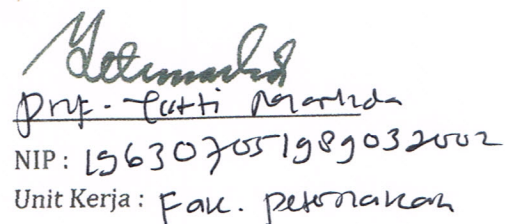 Prof. Yatti
NIP : 196307051989032002
Unit Kerja : Fak. Peternakan